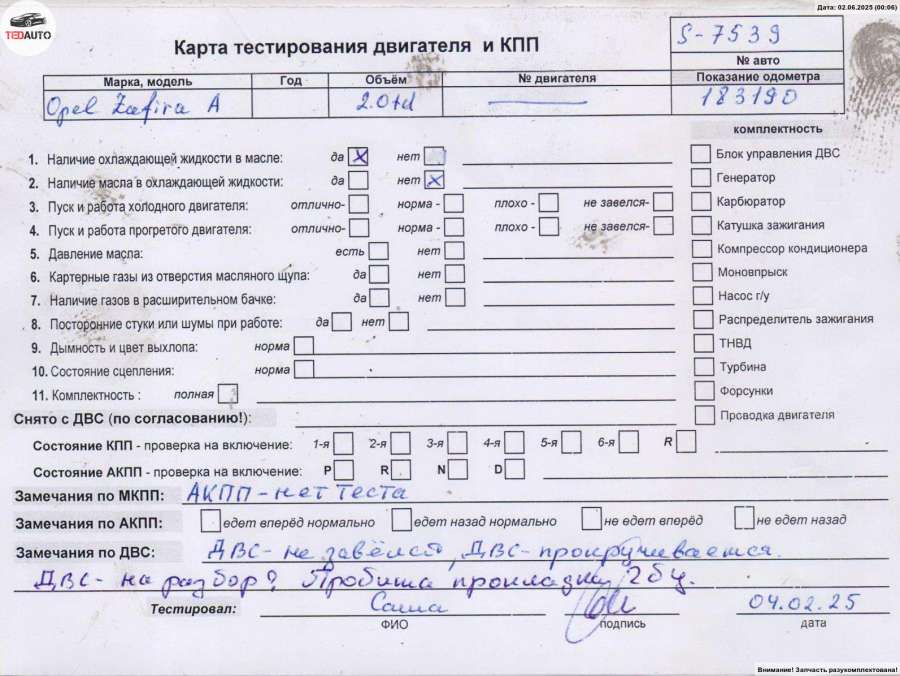 Дата: 02.06.2025 (00:06)
TEDAUTO
Карта тестирования двигателя и КПП
S-7539
№ авто
Марка, модель Год Объём № двигателя Показание одометра
Opel Zafira A 2.0td — 183190
комплектность
1. Наличие охлаждающей жидкости в масле: да нет
Блок управления ДВС
2. Наличие масла в охлаждающей жидкости: да нет
Генератор
3. Пуск и работа холодного двигателя: отлично- норма - плохо - не завелся-
Карбюратор
4. Пуск и работа прогретого двигателя: отлично- норма - плохо - не завелся-
Катушка зажигания
5. Давление масла: есть нет
Компрессор кондиционера
6. Картерные газы из отверстия масляного щупа: да нет
Моновпрыск
7. Наличие газов в расширительном бачке: да нет
Насос г/у
8. Посторонние стуки или шумы при работе: да нет
Распределитель зажигания
9. Дымность и цвет выхлопа: норма
ТНВД
10. Состояние сцепления: норма
Турбина
11. Комплектность : полная
Форсунки
Снято с ДВС (по согласованию!):
Проводка двигателя
Состояние КПП - проверка на включение: 1-я 2-я 3-я 4-я 5-я 6-я R
Состояние АКПП - проверка на включение: P R N D
Замечания по МКПП: АКПП - нет теста
Замечания по АКПП: едет вперёд нормально едет назад нормально не едет вперёд не едет назад
Замечания по ДВС: ДВС - не завёлся, ДВС - прокручивается.
ДВС - на разбор? Пробита прокладка гбц.
Тестировал: Саша 04.02.25
ФИО подпись дата
Внимание! Запчасть разукомплектована!